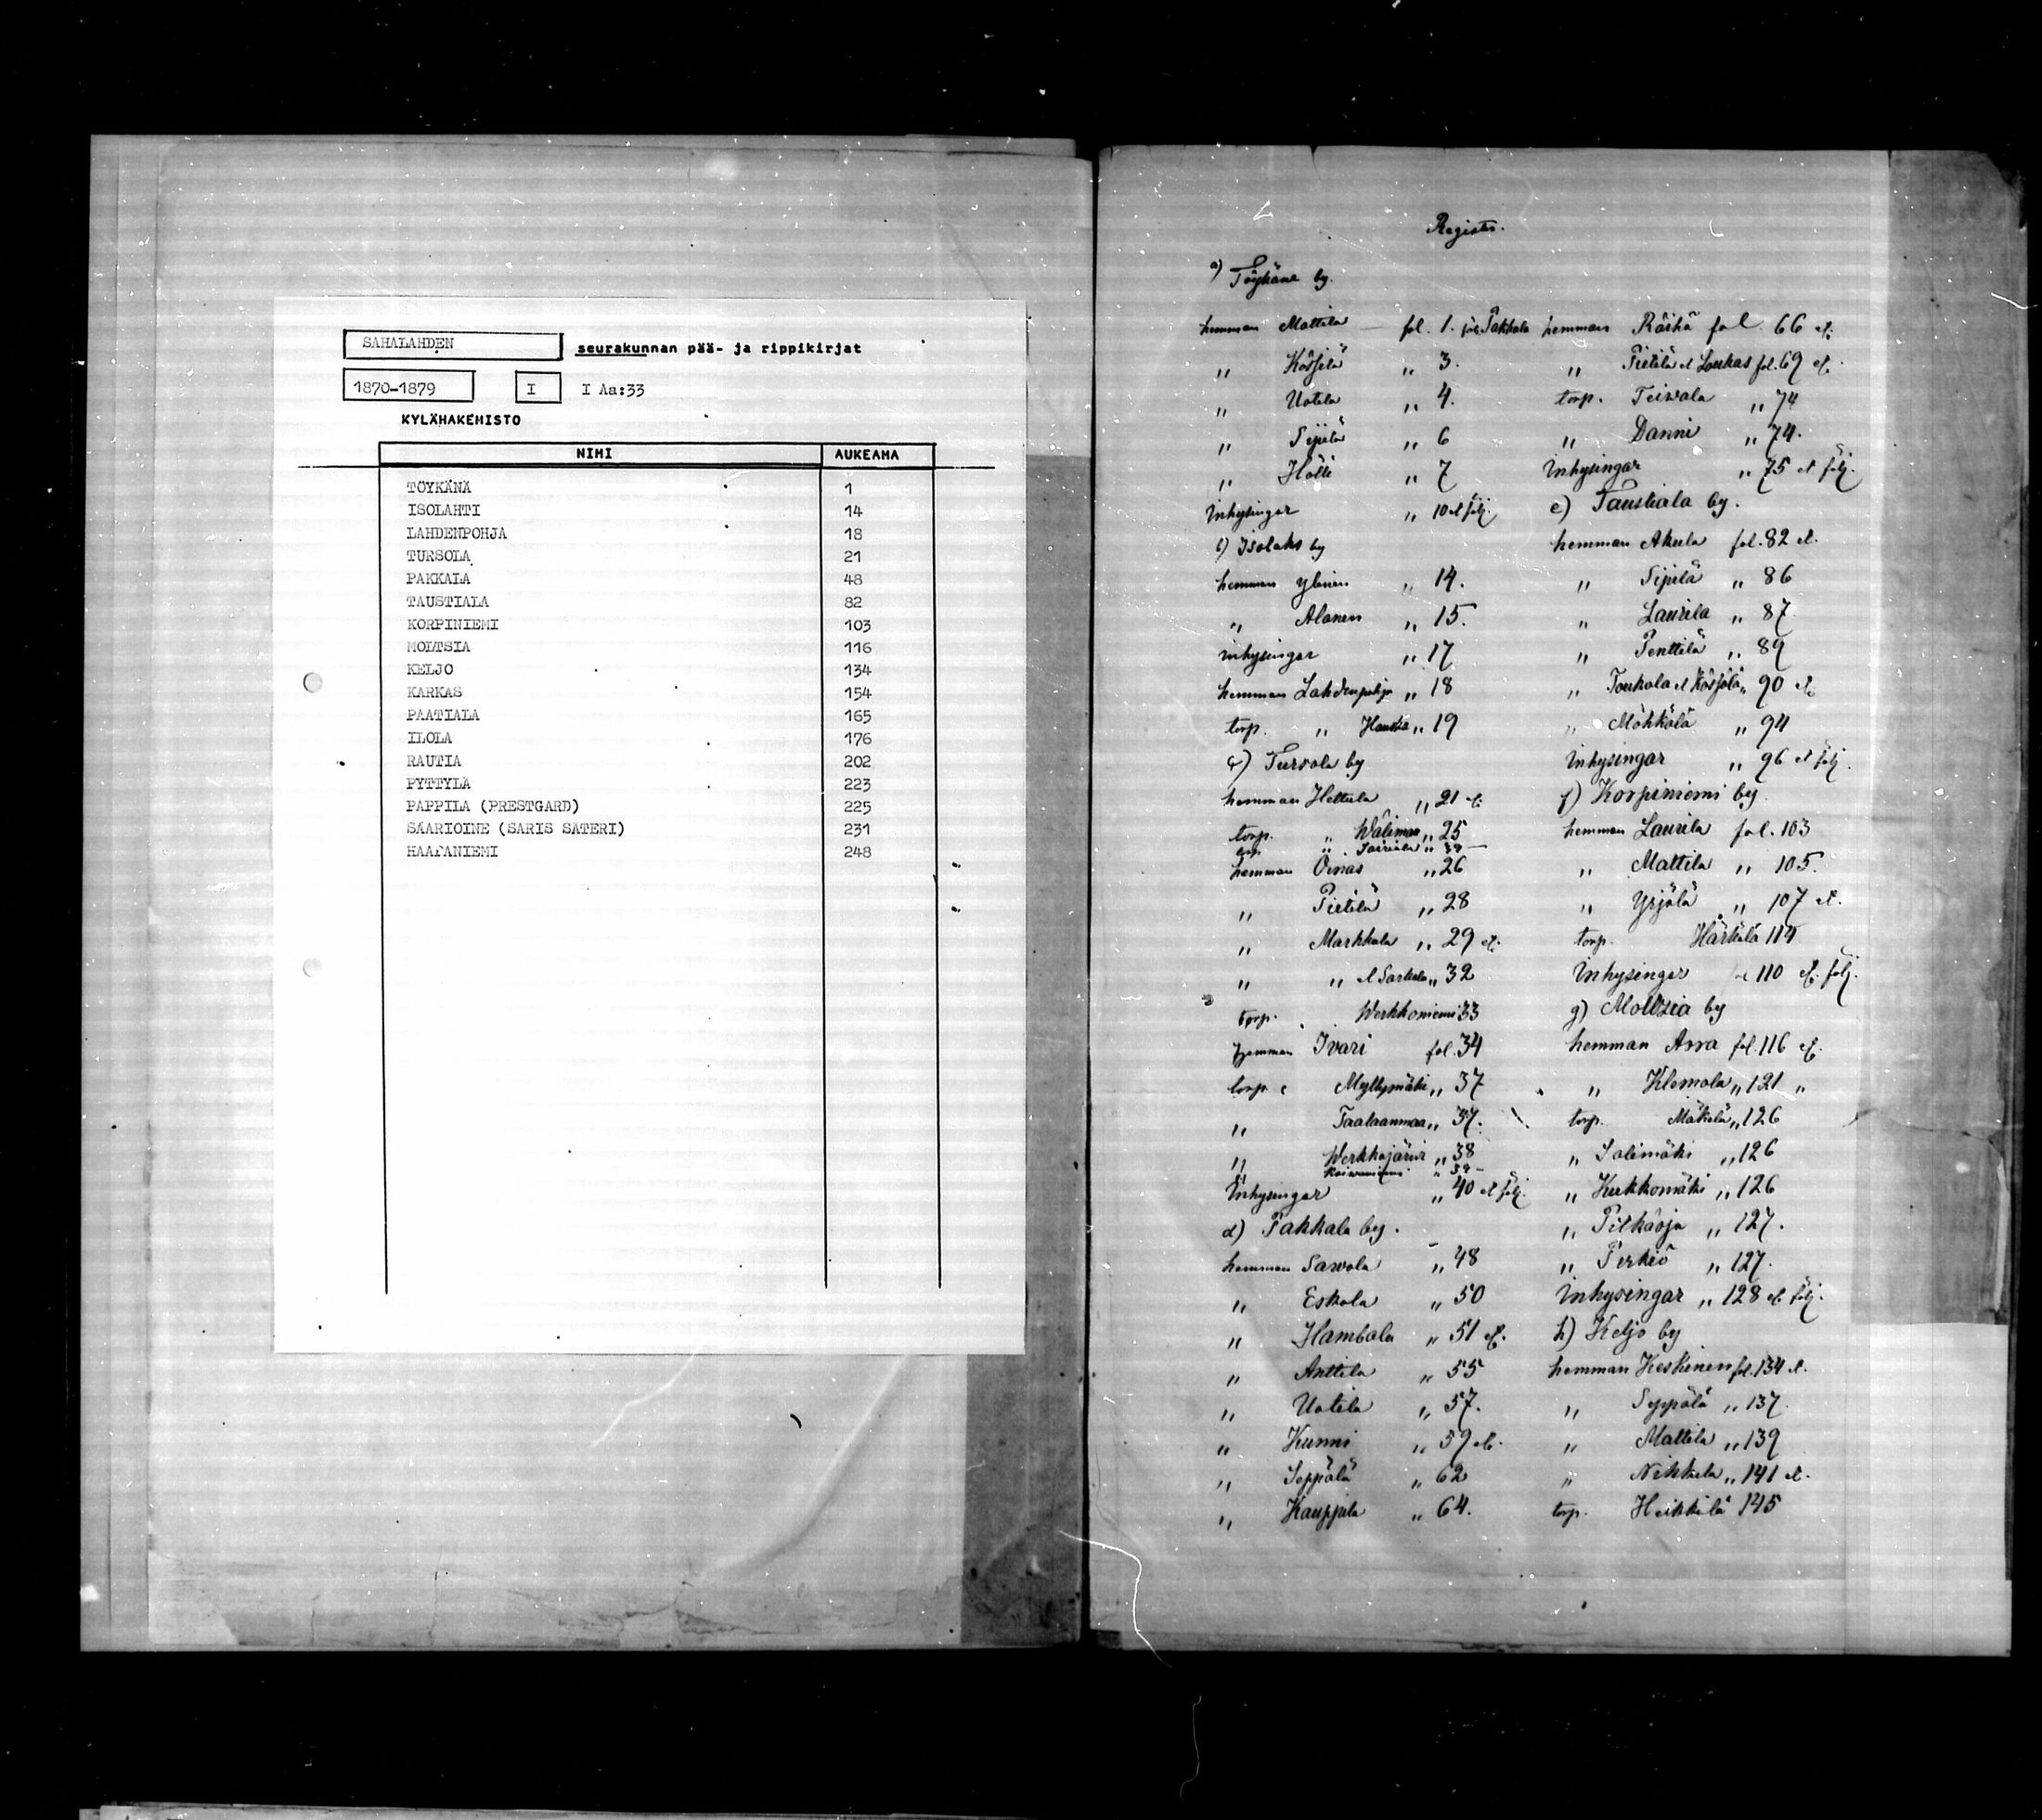 SAHALAHDEN
seurakunnan pää- ja rippikirjat
1870-1879 I I Aa:33
KYLÄHAKEMISTO
NIMI AUKEAMA
TÖYKÄNÄ 1
ISOLAHTI 14
LAHDENPOHJA 18
TURSOLA 21
PAKKALA 48
TAUSTIALA 82
KORPINIEMI 103
MOLTSIA 116
KELJO 134
KARKAS 154
PAATIALA 165
ILOLA 176
RAUTIA 202
PYTTYLÄ 223
PAPPILA (PRESTGARD) 225
SAARIOINE (SARIS SÄTERI) 231
HAAPANIEMI 248
Register.
a) Töykäne by.
hemman Mattila fol. 1.
" Kössilä " 3.
" Uotila " 4.
" Sipilä " 6
" Hölli " 7
Inhysingar " 10 et följ.
b) Isolaks by
hemman Ylinen " 14.
" Alanen " 15.
inhysingar " 17
hemman Lahdenpohja " 18
torp. " " 19
c) Tursola by
hemman Hettula " 21 et.
torp. " Wälimaa " 25
hemman Oinas " 26
" Pietilä " 28
" Markkula " 29 et.
" " et " 32
torp. Werkkoniemi 33
hemman Ivari fol. 34
torp. Myllymäki " 37
" Taalaanmaa " 37.
" Werkkojärvi " 38
Inhysingar " 40 et följ.
d) Pakkala by.
hemman Savola " 48
" Eskola " 50
" Hambala " 51 et.
" Anttila " 55
" Uotila " 57.
" Kunni " 59 et.
" Seppälä " 62
" Kauppila " 64.
Pakkala hemman Räihä fol. 66 et.
" Pietilä et Loukas fol. 69 et.
torp. Teivala " 74
" Danni " 74.
Inhysingar " 75 et följ.
e) Taustiala by.
hemman Akula fol. 82 et.
" Sipilä " 86
" Laurila " 87
" Penttilä " 89
" Toukola et Kössölä " 90 et.
" Möhkölä " 94
Inhysingar " 96 et följ.
f) Korpiniemi by
hemman Laurila fol. 103
" Mattila " 105.
" Yrjölä " 107 et.
torp. Härkälä 114
Inhysingar fol 110 et följ.
g) Moltzia by
hemman Arra fol. 116 et.
" Klemola " 121 "
torp. Mäkelä " 126
" Salimäki " 126
" Kukkomäki " 126
" Pitkäoja " 127.
" Perkiö " 127.
Inhysingar " 128 et följ.
h) Keljo by
hemman Keskinen fol. 134 et.
" Seppälä " 137
" Mattila " 139
" Nikkila " 141 et.
torp. Heikkilä 145